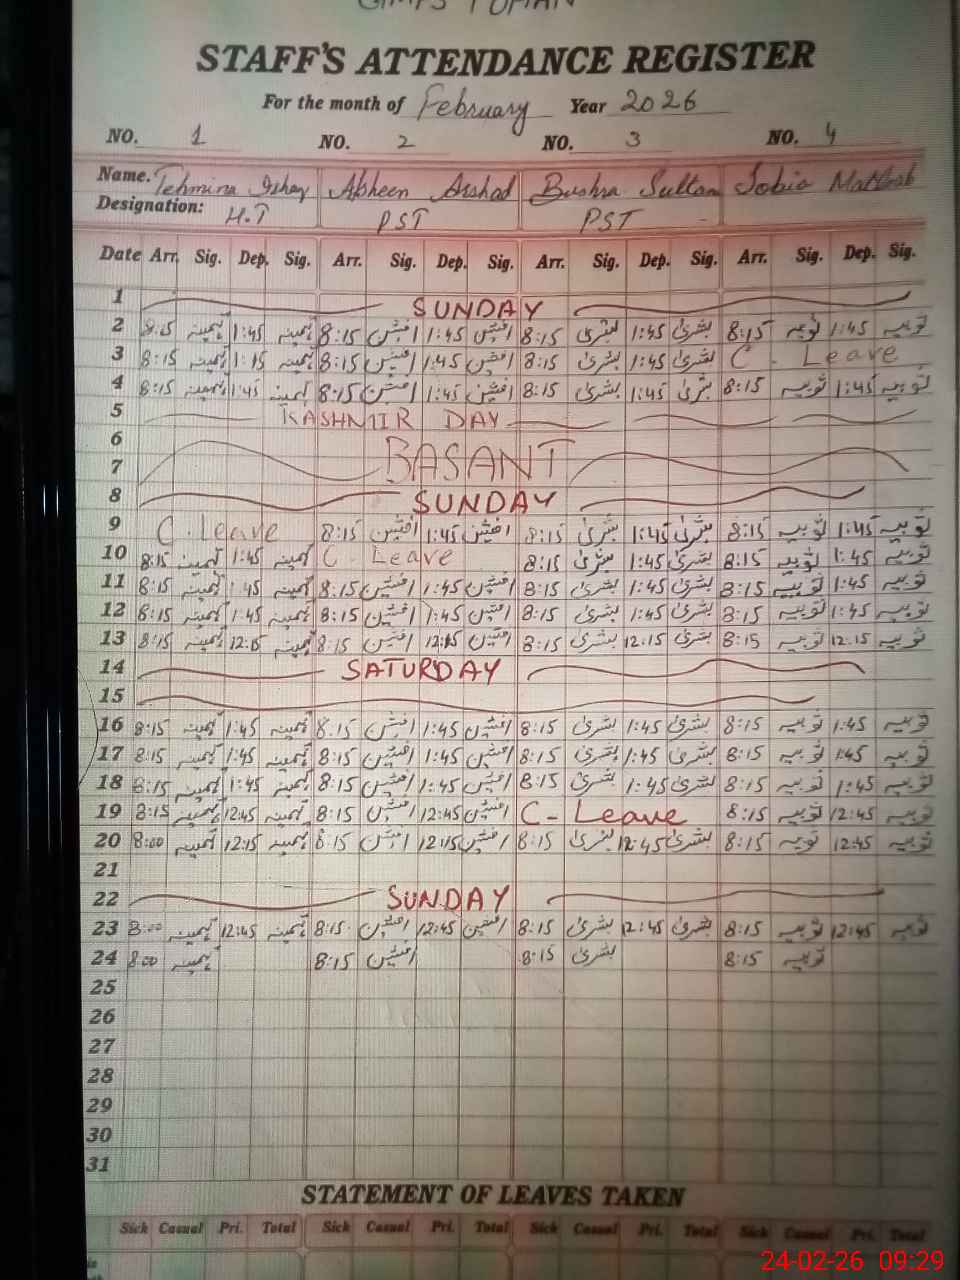 STAFF'S ATTENDANCE REGISTER
For the month of February Year 2026
NO. 1 NO. 2 NO. 3 NO. 4
Name. Tehmina Ishaq Afsheen Arshad Bushra Sultan Sobia
Designation: H.T PST PST
Date Arr. Sig. Dep. Sig. Arr. Sig. Dep. Sig. Arr. Sig. Dep. Sig. Arr. Sig. Dep. Sig.
1 SUNDAY
2 8:15 تہمینہ 1:45 تہمینہ 8:15 افشین 1:45 افشین 8:15 بشریٰ 1:45 بشریٰ 8:15 ثوبیہ 1:45 ثوبیہ
3 8:15 تہمینہ 1:15 تہمینہ 8:15 افشین 1:45 افشین 8:15 بشریٰ 1:45 بشریٰ C. Leave
4 8:15 تہمینہ 1:45 تہمینہ 8:15 افشین 1:45 افشین 8:15 بشریٰ 1:45 بشریٰ 8:15 ثوبیہ 1:45 ثوبیہ
5 KASHMIR DAY
6
7 BASANT
8 SUNDAY
9 C. Leave 8:15 افشین 1:45 افشین 8:15 بشریٰ 1:45 بشریٰ 8:15 ثوبیہ 1:45 ثوبیہ
10 8:15 تہمینہ 1:45 تہمینہ C. Leave 8:15 بشریٰ 1:45 بشریٰ 8:15 ثوبیہ 1:45 ثوبیہ
11 8:15 تہمینہ 1:45 تہمینہ 8:15 افشین 1:45 افشین 8:15 بشریٰ 1:45 بشریٰ 8:15 ثوبیہ 1:45 ثوبیہ
12 8:15 تہمینہ 1:45 تہمینہ 8:15 افشین 1:45 افشین 8:15 بشریٰ 1:45 بشریٰ 8:15 ثوبیہ 1:45 ثوبیہ
13 8:15 تہمینہ 12:15 تہمینہ 8:15 افشین 12:15 افشین 8:15 بشریٰ 12:15 بشریٰ 8:15 ثوبیہ 12:15 ثوبیہ
14 SATURDAY
15
16 8:15 تہمینہ 1:45 تہمینہ 8:15 افشین 1:45 افشین 8:15 بشریٰ 1:45 بشریٰ 8:15 ثوبیہ 1:45 ثوبیہ
17 8:15 تہمینہ 1:45 تہمینہ 8:15 افشین 1:45 افشین 8:15 بشریٰ 1:45 بشریٰ 8:15 ثوبیہ 1:45 ثوبیہ
18 8:15 تہمینہ 1:45 تہمینہ 8:15 افشین 1:45 افشین 8:15 بشریٰ 1:45 بشریٰ 8:15 ثوبیہ 1:45 ثوبیہ
19 8:15 تہمینہ 12:45 تہمینہ 8:15 افشین 12:45 افشین C- Leave 8:15 ثوبیہ 12:45 ثوبیہ
20 8:00 تہمینہ 12:15 تہمینہ 8:15 افشین 12:15 افشین 8:15 بشریٰ 12:45 بشریٰ 8:15 ثوبیہ 12:45 ثوبیہ
21
22 SUNDAY
23 8:00 تہمینہ 12:45 تہمینہ 8:15 افشین 12:45 افشین 8:15 بشریٰ 12:45 بشریٰ 8:15 ثوبیہ 12:45 ثوبیہ
24 8:00 تہمینہ 8:15 افشین 8:15 بشریٰ 8:15 ثوبیہ
25
26
27
28
29
30
31
STATEMENT OF LEAVES TAKEN
Sick Casual Pri. Total Sick Casual Pri. Total Sick Casual Pri. Total Sick Casual Pri. Total
24-02-26 09:29